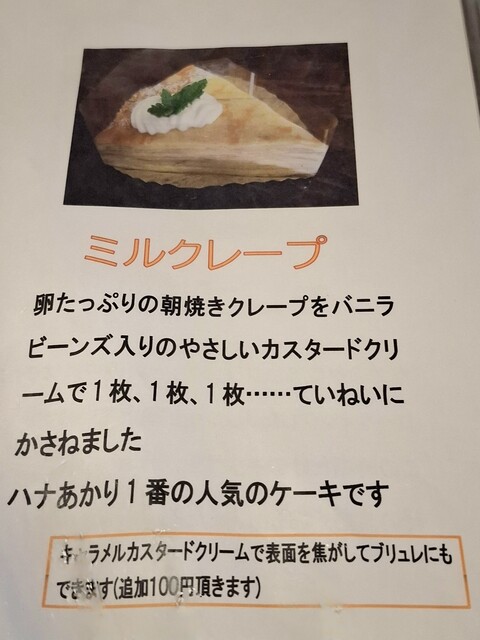 ミルクレープ
卵たっぷりの朝焼きクレープをバニラ
ビーンズ入りのやさしいカスタードクリ
ームで1枚、1枚、1枚……ていねいに
かさねました
ハナあかり1番の人気のケーキです
キャラメルカスタードクリームで表面を焦がしてブリュレにも
できます(追加100円頂きます)